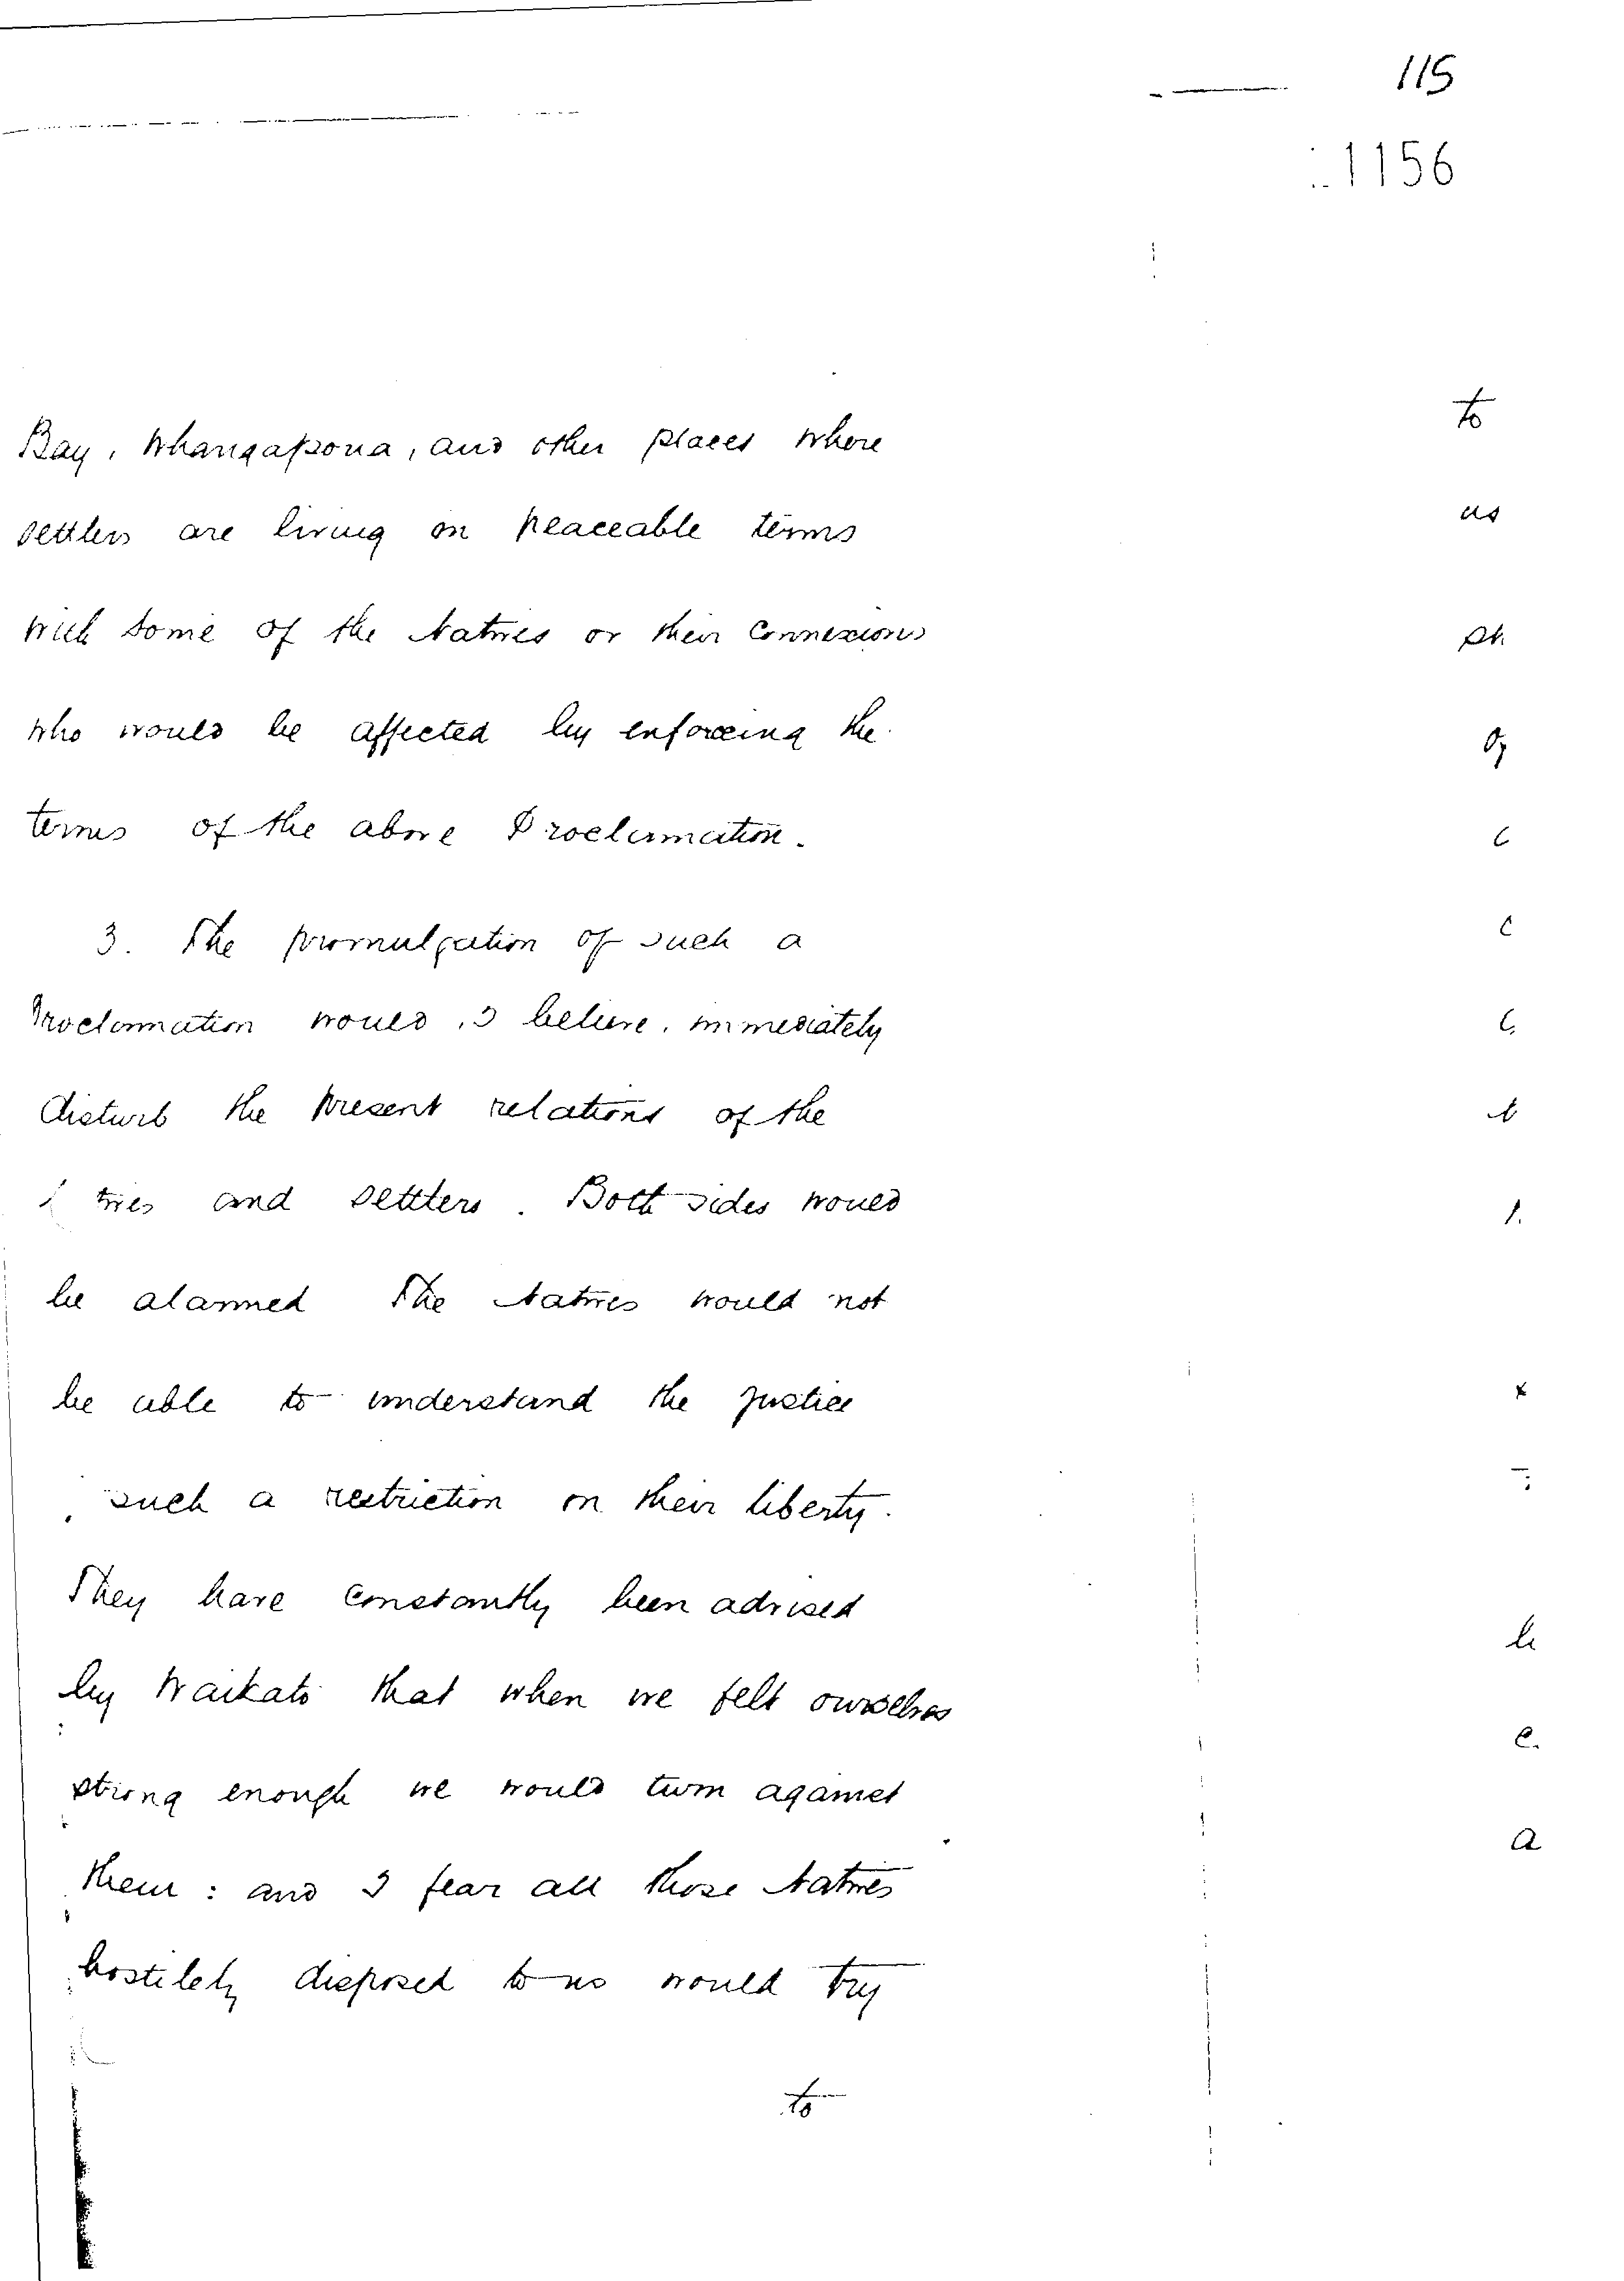 115
1156
Bay, Whangapoua, and other places where
settlers are living on peaceable terms
with some of the Natives or their Connexions
who would be affected by enforcing the
terms of the above Proclamation.
3. The promulgation of such a
Proclamation would, I believe, immediately
disturb the present relations of the
and settlers. Both sides would
be alarmed The Natives would not
be able to understand the justice
such a restriction on their liberty.
They have constantly been advised
by Waikato that when we felt ourselves
strong enough we would turn against
them: and I fear all those Natives
hostilely disposed to us would try
to
to
as